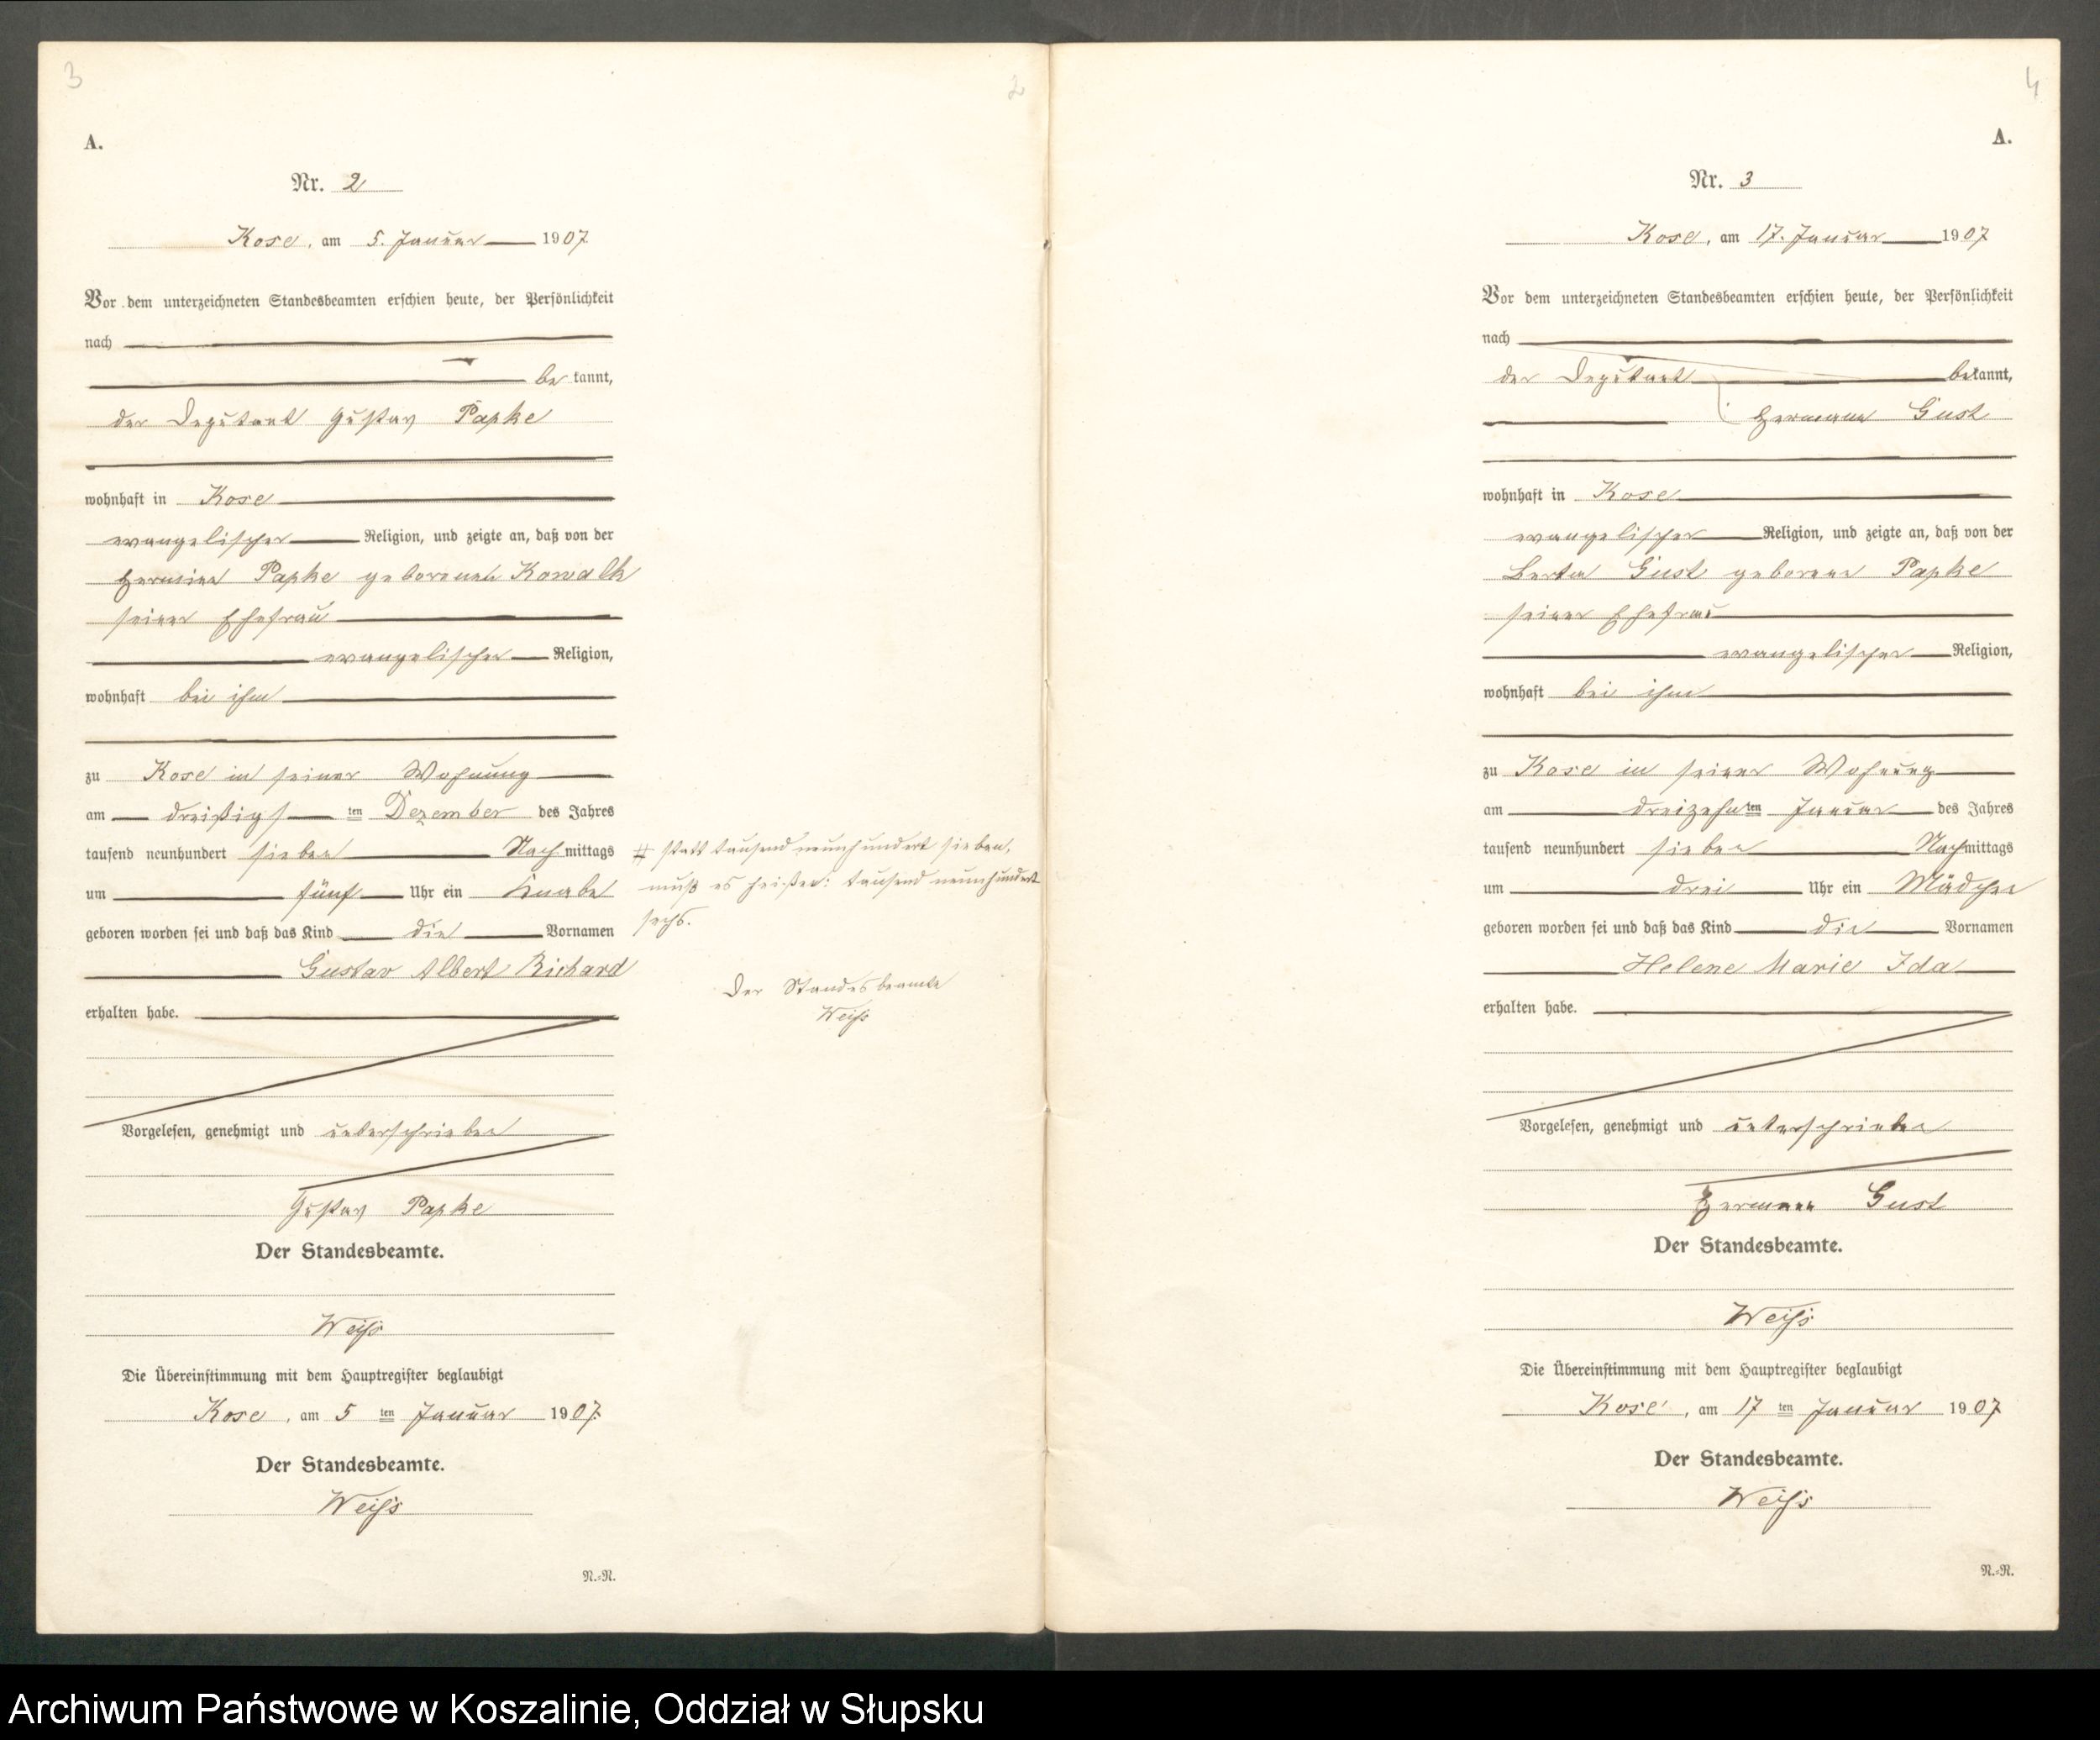 3
2
A.
Nr. 2
Kose, am 5. Januar 1907.
Vor dem unterzeichneten Standesbeamten erschien heute, der Persönlichkeit
nach
be kannt,
der Deputant Gustav Papke
wohnhaft in Kose
evangelischer Religion, und zeigte an, daß von der
Hermine Papke geborenen Kowalk
seiner Ehefrau
evangelischer Religion,
wohnhaft bei ihm
zu Kose in seiner Wohnung
am dreißigs ten Dezember des Jahres
tausend neunhundert sieben Nach mittags
um fünf Uhr ein Knabe
geboren worden sei und daß das Kind die Vornamen
Gustav Albert Richard
erhalten habe.
Vorgelesen, genehmigt und unterschrieben
Gustav Papke
Der Standesbeamte.
Weiß
Die Übereinstimmung mit dem Hauptregister beglaubigt
Kose, am 5 ten Januar 1907.
Der Standesbeamte.
Weiß
N.=N.
# statt tausend neunhundert sieben,
muß es heißen: tausend neunhundert
sechs.
Der Standesbeamte
Weiß
4
A.
Nr. 3
Kose, am 17. Januar 1907
Vor dem unterzeichneten Standesbeamten erschien heute, der Persönlichkeit
nach
der Deputant bekannt,
Hermann Gust
wohnhaft in Kose
evangelischer Religion, und zeigte an, daß von der
Berta Gust geborene Papke
seiner Ehefrau
evangelischer Religion,
wohnhaft bei ihm
zu Kose in seiner Wohnung
am dreizehn ten Januar des Jahres
tausend neunhundert sieben Nachmittags
um drei Uhr ein Mädchen
geboren worden sei und daß das Kind die Vornamen
Helene Marie Ida
erhalten habe.
Vorgelesen, genehmigt und unterschrieben
Hermann Gust
Der Standesbeamte.
Weiß
Die Übereinstimmung mit dem Hauptregister beglaubigt
Kose, am 17 ten Januar 1907
Der Standesbeamte.
Weiß
N.=N.
Archiwum Państwowe w Koszalinie, Oddział w Słupsku